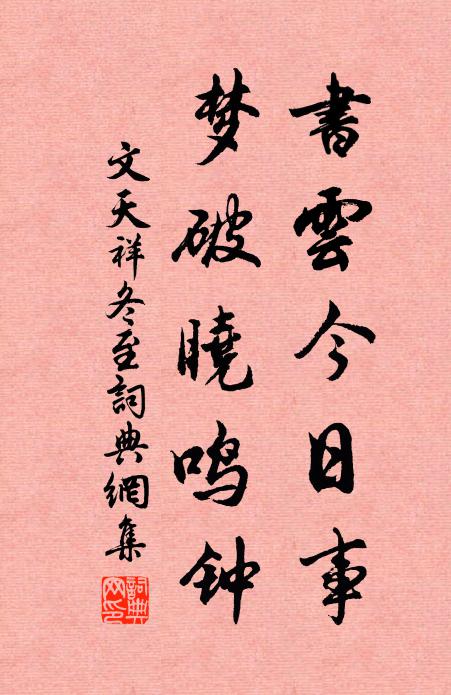 書雲今日事
梦破曉鸣钟
文天祥冬至詞典網集
詞典網印